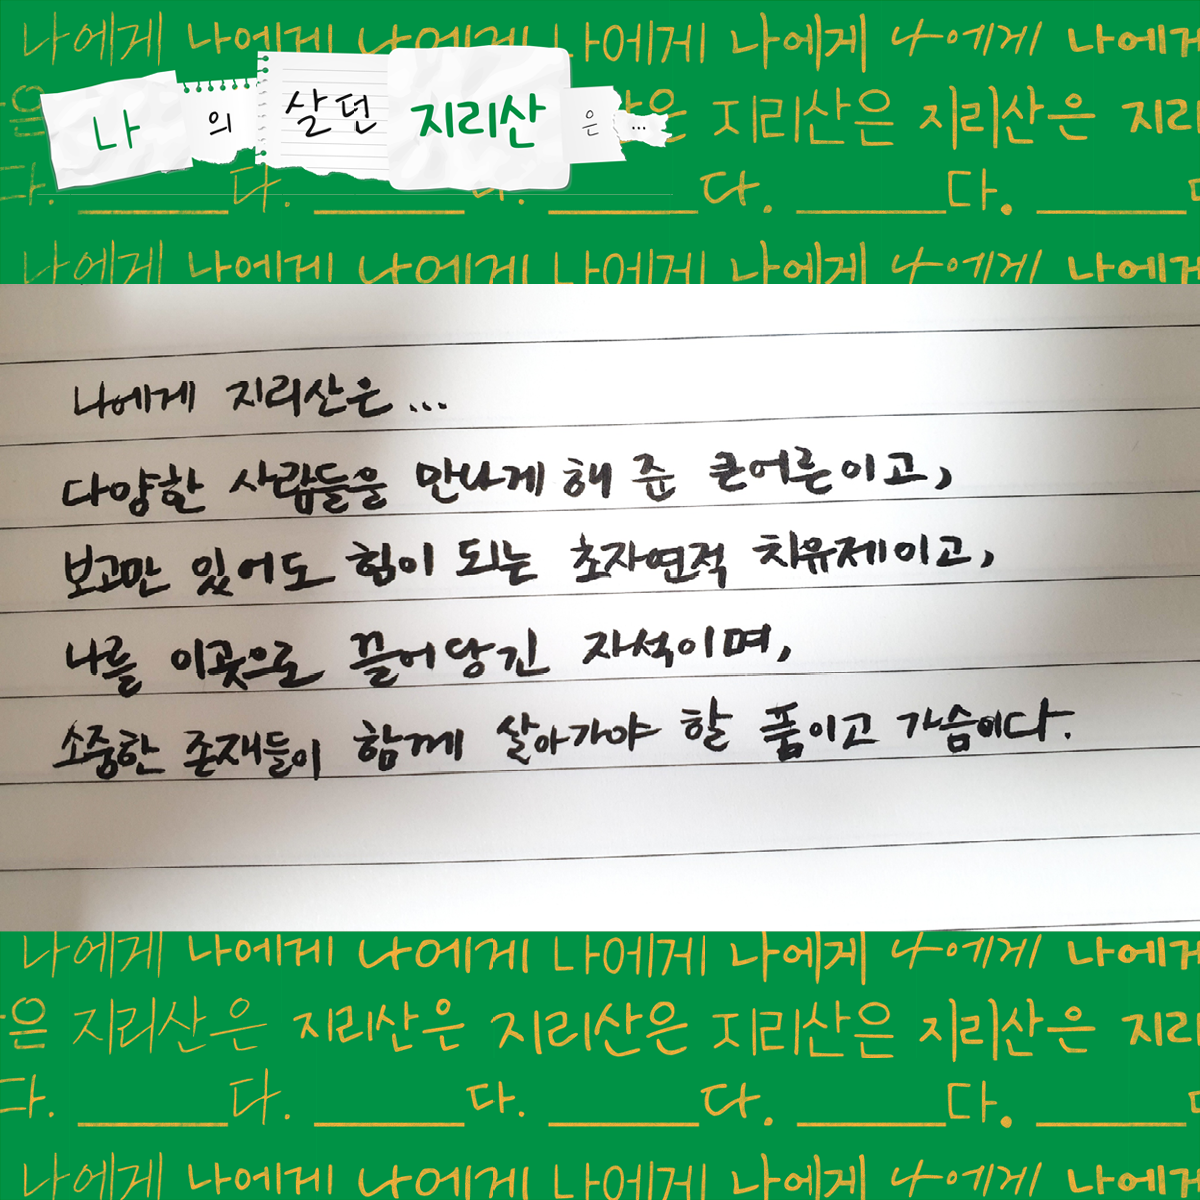 나에게 나에게 나에게 나에게 나에게 나에게 나에게
은 은 지리산은 지리산은 지리
나의 살던 지리산은...
다. ______다. ______다. ______다. ______다. ______
나에게 나에게 나에게 나에게 나에게 나에게 나에게
나에게 지리산은...
다양한 사람들을 만나게 해 준 큰어른이고,
보고만 있어도 힘이 되는 초자연적 치유제이고,
나를 이곳으로 끌어당긴 자석이며,
소중한 존재들이 함께 살아가야 할 품이고 가슴이다.
나에게 나에게 나에게 나에게 나에게 나에게 나에게
은 지리산은 지리산은 지리산은 지리산은 지리산은 지리
다. ______다. ______다. ______다. ______다. ______
나에게 나에게 나에게 나에게 나에게 나에게 나에게